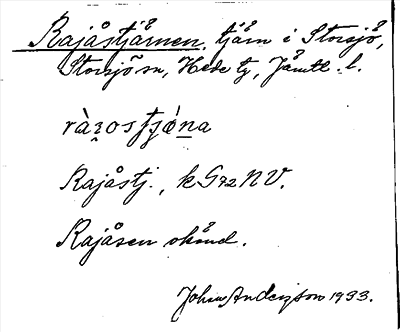 Rajåstjärnen, tjärn i Storsjö,
Storsjö sn, Hede tg, Jämtl. l.
ràʒosʈʃǿna
Rajåstj., k G72 NV.
Rajåsen okänd.
Johan Anderzson 1933.